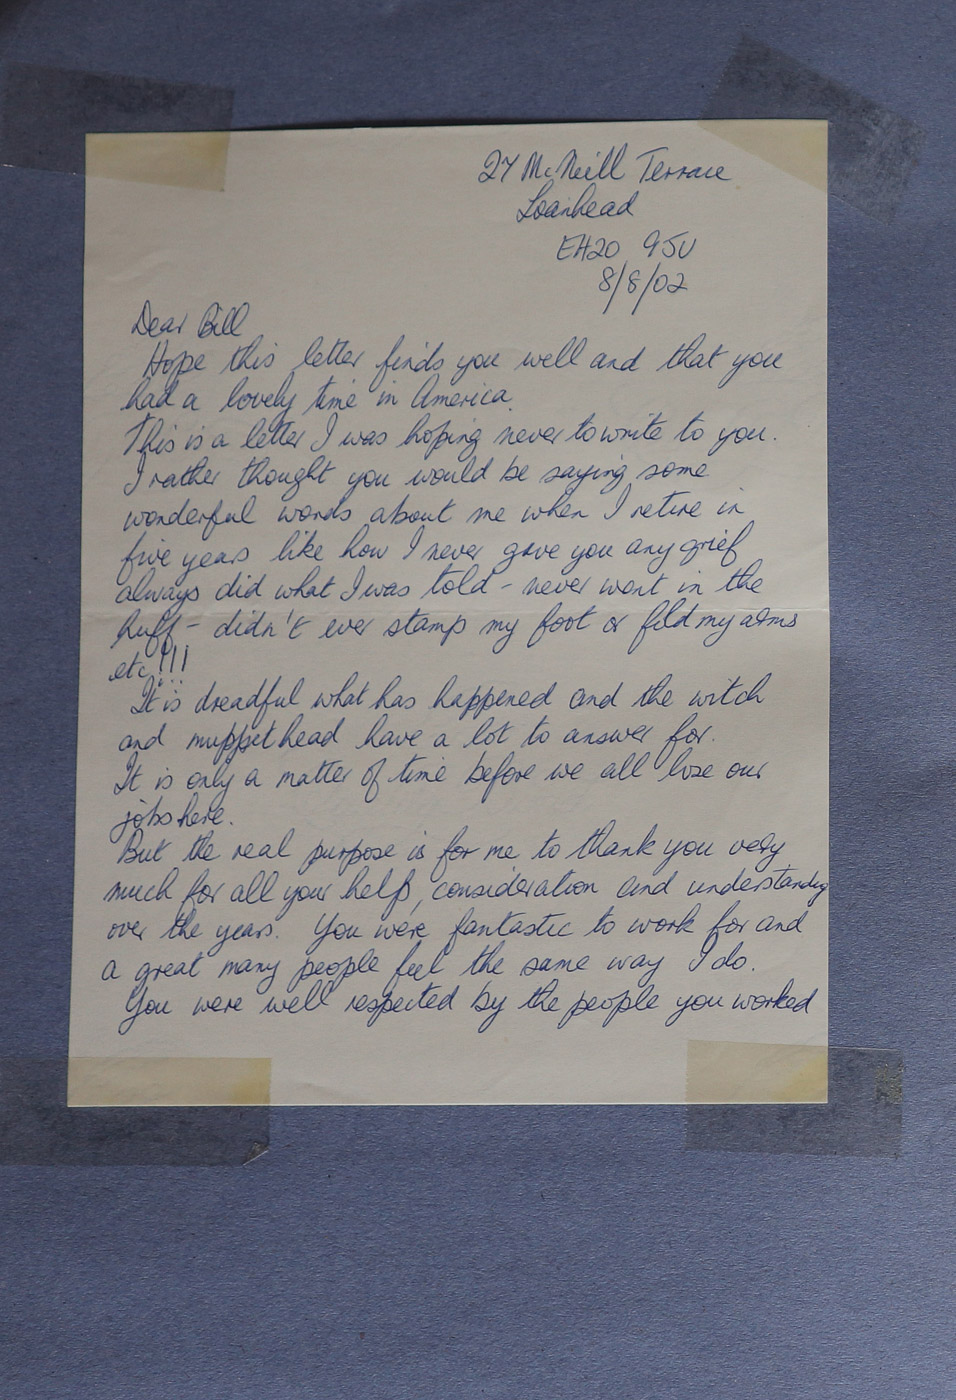 27 McNeill Terrace
Loanhead
EH20 9JU
8/8/02
Dear Bill
Hope this letter finds you well and that you
had a lovely time in America.
This is a letter I was hoping never to write to you.
I rather thought you would be saying some
wonderful words about me when I retire in
five years like how I never gave you any grief
always did what I was told - never went in the
huff - didn't ever stamp my foot or fold my arms
etc!!!
It is dreadful what has happened and the witch
and muppethead have a lot to answer for.
It is only a matter of time before we all lose our
jobs here.
But the real purpose is for me to thank you very
much for all your help, consideration and understanding
over the years. You were fantastic to work for and
a great many people feel the same way I do.
You were well respected by the people you worked